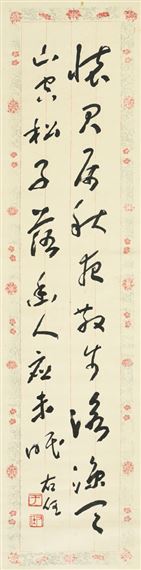 懷君屬秋夜散步詠涼天
山空松子落幽人應未眠
右任